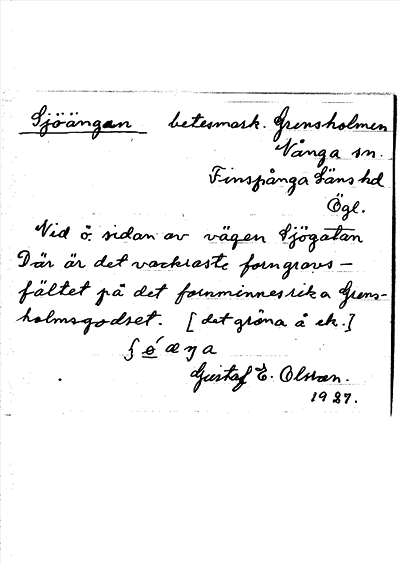 Sjöängen betesmark. Grensholmen
Vånga sn.
Finspånga läns hd
Ögl.
Vid ö. sidan av vägen Sjögatan
Där är det vackraste forngravs-
fältet på det fornminnesrika Grens-
holmsgodset. [det gröna å ek.]
ʃ é æ ŋ a
Gustaf E. Olsson.
1927.